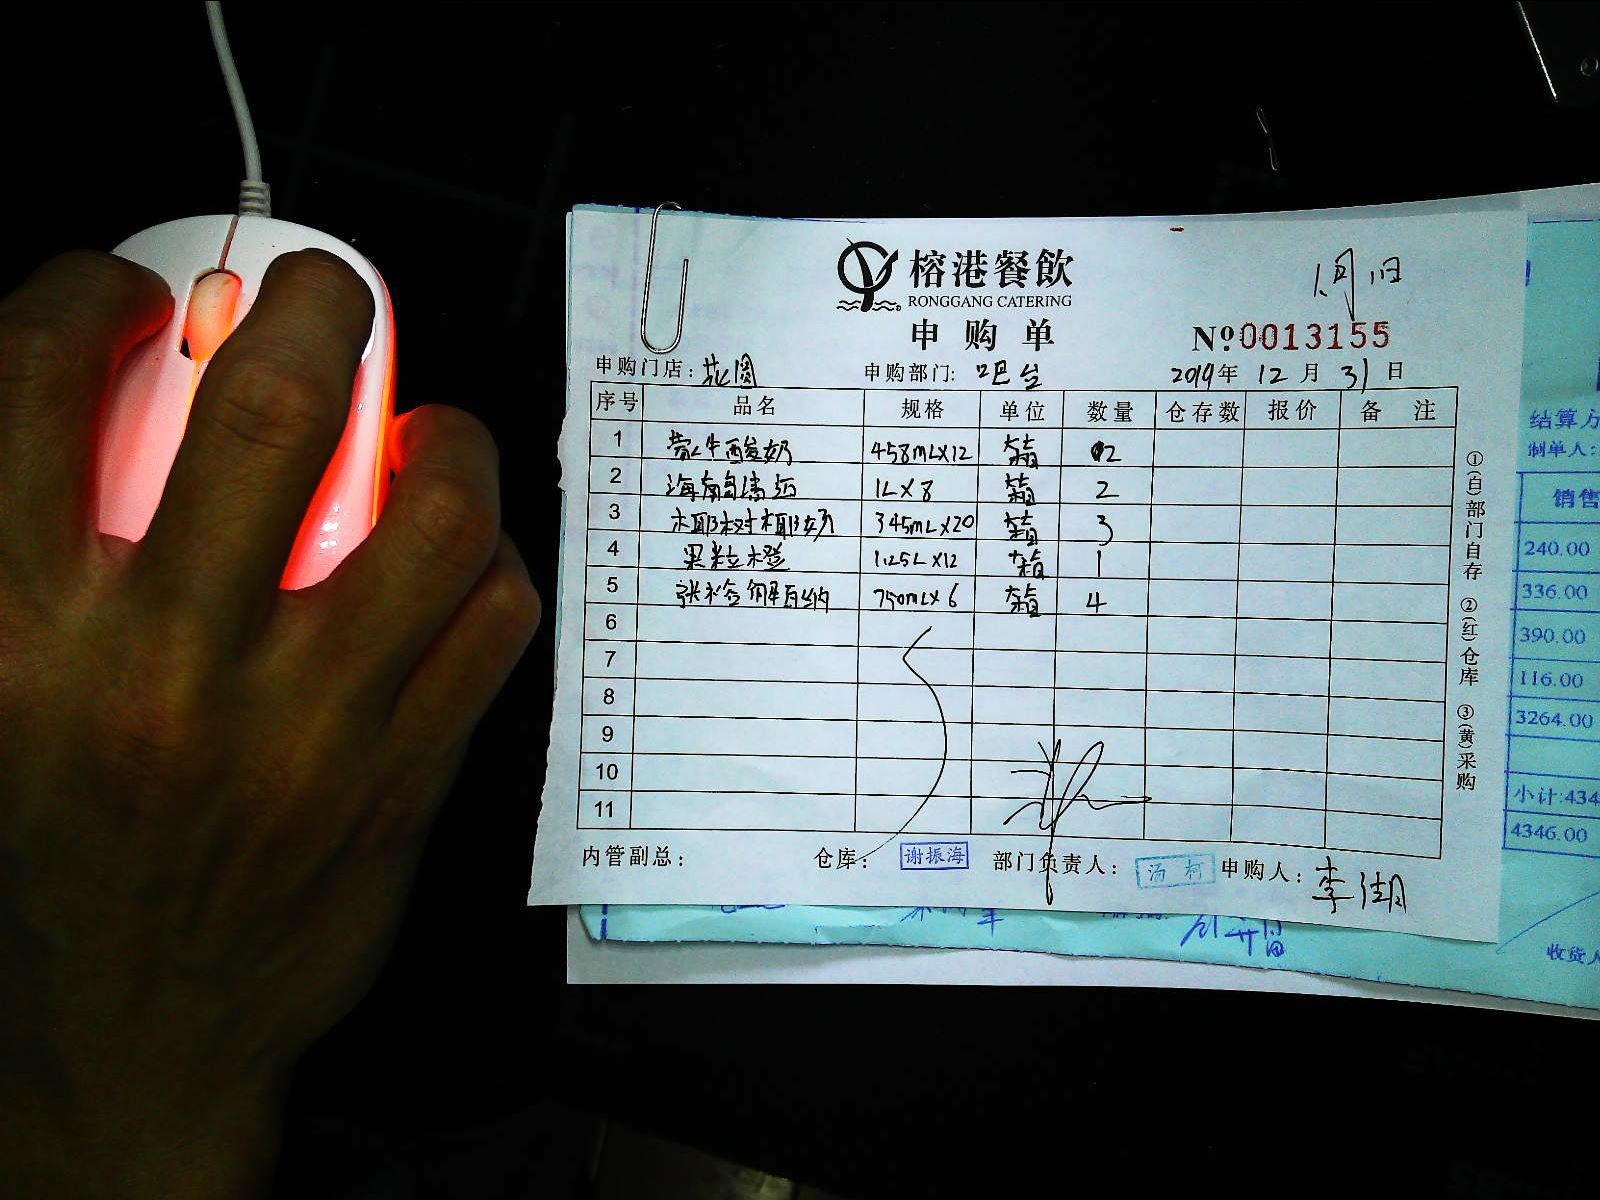 榕港餐飲
RONGGANG CATERING
1月1日
申购单
Nº0013155
申购门店：花园 申购部门: 吧台 2019年 12月 31日
序号 品名 规格 单位 数量 仓存数 报价 备 注
1 蒙牛酸奶 458mLX12 箱 2
2 海南 1LX8 箱 2
3 椰树椰奶 345mLX20 箱 3
4 果粒橙 1.25LX12 箱 1
5 张裕解百纳 750mLX6 箱 4
6
7
8
9
10
11
内管副总： 仓库：谢振海 部门负责人：汤柯 申购人：李湖
①(白)部门自存 ②(红)仓库 ③(黄)采购
结算方
制单人：
销售
240.00
336.00
390.00
116.00
3264.00
小计:434
4346.00
收货人